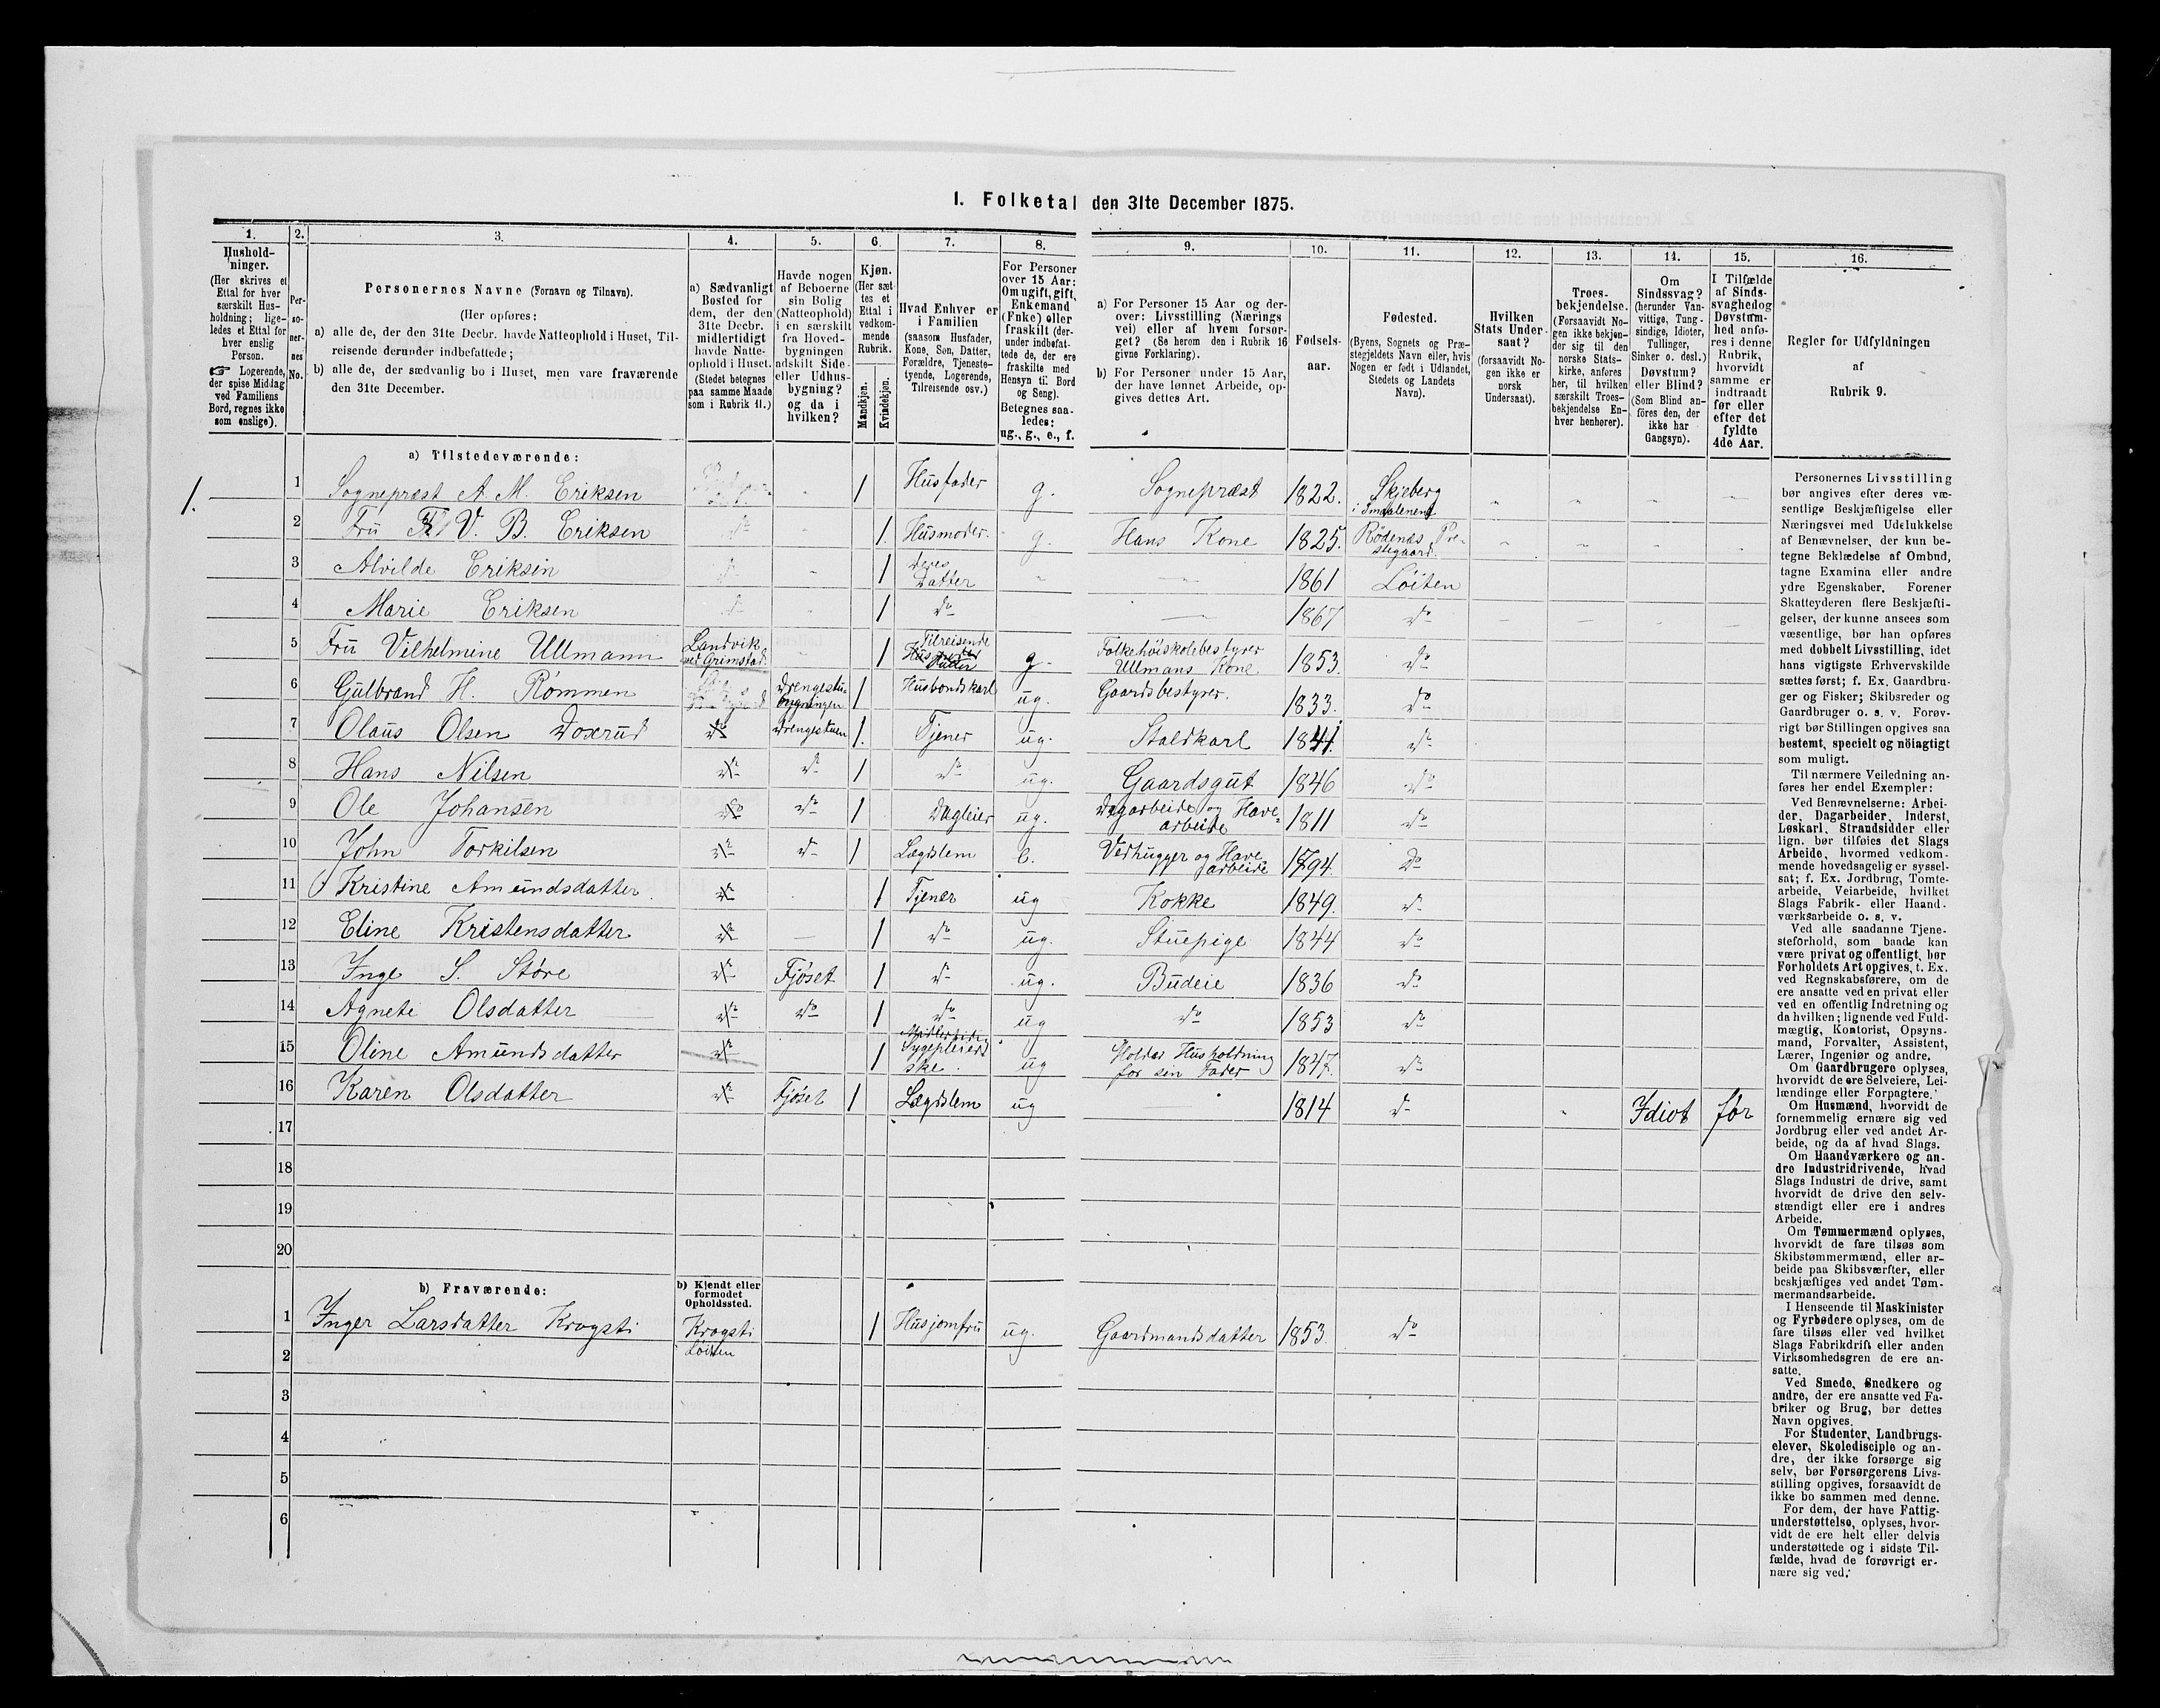 I. Folketal den 31te December 1875.
1. 2. 3. 4. 5. 6. 7. 8. 9. 10. 11. 12. 13. 14. 15. 16.
Hushold-
ninger.
(Her skrives et
Ettal for hver
særskilt Hus-
holdning; lige-
ledes et Ettal for
hver enslig
Person.
☞ Logerende,
der spise Middag
ved Familiens
Bord, regnes ikke
som enslige).
Per-
so-
ner-
nes
No.
Personernes Navne (Fornavn og Tilnavn).
(Her opføres:
a) alle de, der den 31te Decbr. havde Natteophold i Huset, Til-
reisende derunder indbefattede;
b) alle de, der sædvanlig bo i Huset, men vare fraværende
den 31te December.
a) Sædvanligt
Bosted for
dem, der den
31te Decbr.
midlertidigt
havde Natte-
ophold i Huset.
(Stedet betegnes
paa samme Maade
som i Rubrik 11.)
Havde nogen
af Beboerne
sin Bolig
(Natteophold)
i en særskilt
fra Hoved-
bygningen
adskilt Side-
eller Udhus-
bygning?
og da i
hvilken?
Kjøn.
(Her sæt-
tes et
Ettal i
vedkom-
mende
Rubrik.
Mandkjøn.
Kvindekjøn.
Hvad Enhver er
i Familien
(saasom Husfader,
Kone, Søn, Datter,
Forældre, Tjeneste-
tyende, Logerende,
Tilreisende osv.)
For Personer
over 15 Aar:
Om ugift, gift,
Enkemand
(Enke) eller
fraskilt (der-
under indbefat-
tede de, der ere
fraskilte med
Hensyn til Bord
og Seng).
Betegnes saa-
ledes:
ug., g., e., f.
a) For Personer 15 Aar og der-
over: Livsstilling (Nærings
vei) eller af hvem forsør-
get? (Se herom den i Rubrik 16
givne Forklaring).
b) For Personer under 15 Aar,
der have lønnet Arbeide, op-
gives dettes Art.
Fødsels-
aar.
Fødested.
(Byens, Sognets og Præ-
stegjeldets Navn eller, hvis
Nogen er født i Udlandet,
Stedets og Landets
Navn).
Hvilken
Stats Under-
saat?
(forsaavidt No-
gen ikke er
norsk
Undersaat).
Troes-
bekjendelse.
(Forsaavidt No-
gen ikke bekjen-
der sig til den
norske Stats-
kirke, anføres
her, til hvilken
særskilt Troes-
bekjendelse En-
hver henhører).
Om
Sindssvag?
(herunder Van-
vittige, Tung-
sindige, Idioter,
Tullinger,
Sinker o. desl.)
Døvstum?
eller Blind?
(Som Blind an-
föres den, der
ikke har
Gangsyn).
I Tilfælde
af Sinds-
svaghed og
Døvstum-
hed anfø-
res i denne
Rubrik,
hvorvidt
samme er
indtraadt
før eller
efter det
fyldte
4de Aar.
Regler for Udfyldningen
af
Rubrik 9.
a) Tilstedeværende:
1. 1 Sognepræst A. M. Eriksen 1 Husfader g. Sognepræst 1822. Skjeberg i Smaalenene
2 Fru V. B. Eriksen do 1. Husmoder. g. Hans Kone 1825. Rödenæs Præstegaard.
3 Alvilde Eriksen do 1 deres Datter 1861 Löiten
4 Marie Eriksen do 1 do 1867 do
5 Fru Vilhelmine Ullmann Landvik ved Grimstad 1 Tilreisende g. Folkehöiskolebestyrer Ullmans Kone 1853. do
6 Gulbrand H. Römmen Drengestubygningen 1 Husbondskarl ug. Gaardsbestyrer. 1833. do
7 Olaus Olsen Doxrud do Drengestuen 1. Tjener ug. Staldkarl 1841. do
8 Hans Nilsen do do 1 do ug. Gaardsgut 1846 do
9 Ole Johansen do do 1 Dagleier ug. Dagarbeide og Havearbeide 1811 do
10 John Torkilsen do do 1 Lægdslem e. Vedhugger og Havearbeide 1794. do
11 Kristine Amundsdatter do 1 Tjener ug Kokke 1849. do
12 Eline Kristensdatter do 1 do ug. Stuepige 1844 do
13 Inge S. Störe do Fjöset 1 do ug. Budeie 1836 do
14 Agnete Olsdatter do do 1 do ug do 1853 do
15 Oline Amundsdatter do 1 Sygepleierske. ug Holder Husholdning for sin Fader 1847. do
16 Karen Olsdatter do Fjöset 1 Lægdslem ug 1814 do Idiot för
17
18
19
20
b) Fraværende:
b) Kjendt eller
formodet
Opholdssted.
1 Inger Larsdatter Krogsti Krogsti Löiten 1 Husjomfru ug. Gaardmandsdatter 1853. do
2
3
4
5
6
Personernes Livsstilling
bør angives efter deres væ-
sentlige Beskjæftigelse eller
Næringsvei med Udelukkelse
af Benævnelser, der kun be-
tegne Beklædelse af Ombud,
tagne Examina eller andre
ydre Egenskaber. Forener
Skatteyderen flere Beskjæfti-
gelser, der kunne ansees som
væsentlige, bør han opføres
med dobbelt Livsstilling, idet
hans vigtigste Erhvervskilde
sættes først; f. Ex. Gaardbru-
ger og Fisker; Skibsreder og
Gaardbruger o. s. v. Forøv-
rigt bør Stillingen opgives saa
bestemt, specielt og nöiagtigt
som muligt.
Til nærmere Veiledning an-
føres her endel Exempler:
Ved Benævnelserne: Arbei-
der, Dagarbeider, Inderst,
Løskarl, Strandsidder eller
lign. bør tilføies det Slags
Arbeide, hvormed vedkom-
mende hovedsagelig er syssel-
sat; f. Ex. Jordbrug, Tomte-
arbeide, Veiarbeide, hvilket
Slags Fabrik- eller Haand-
værksarbeide o. s. v.
Ved alle saadanne Tjene-
steforhold, som baade kan
være privat og offentligt, bør
Forholdets Art opgives, t. Ex.
ved Regnskabsførere, om de
ere ansatte ved en privat eller
ved en offentlig Indretning og
da hvilken; lignende ved Fuld-
mægtig, Kontorist, Opsyns-
mand, Forvalter, Assistent,
Lærer, Ingeniør og andre.
Om Gaardbrugere oplyses,
hvorvidt de ere Selveiere, Lei-
lændinge eller Forpagtere.
Om Husmænd, hvorvidt de
fornemmelig ernære sig ved
Jordbrug eller ved andet Ar-
beide, og da af hvad Slags.
Om Haandværkere og an-
dre Industridrivende, hvad
Slags Industri de drive, samt
hvorvidt de drive den selv-
stændigt eller ere i andres
Arbeide.
Om Tømmermænd oplyses,
hvorvidt de fare tilsøs som
Skibstømmermænd, eller ar-
beide paa Skibsværfter, eller
beskjæftiges ved andet Tøm-
mermandsarbeide.
I Henseende til Maskinister
og Fyrbødere oplyses, om de
fare tilsøs eller ved hvilket
Slags Fabrikdrift eller anden
Virksomhedsgren de ere an-
satte.
Ved Smede, Snedkere og
andre, der ere ansatte ved Fa-
briker og Brug, bør dettes
Navn opgives.
For Studenter, Landbrugs-
elever, Skoledisciple og an-
dre, der ikke forsørge sig
selv, bør Forsørgerens Livs-
stilling opgives, forsaavidt de
ikke bo sammen med denne.
For dem, der have Fattig-
understøttelse, oplyses, hvor-
vidt de ere helt eller delvis
understøttede og i sidste Til-
fælde, hvad de forøvrigt er-
nære sig ved.